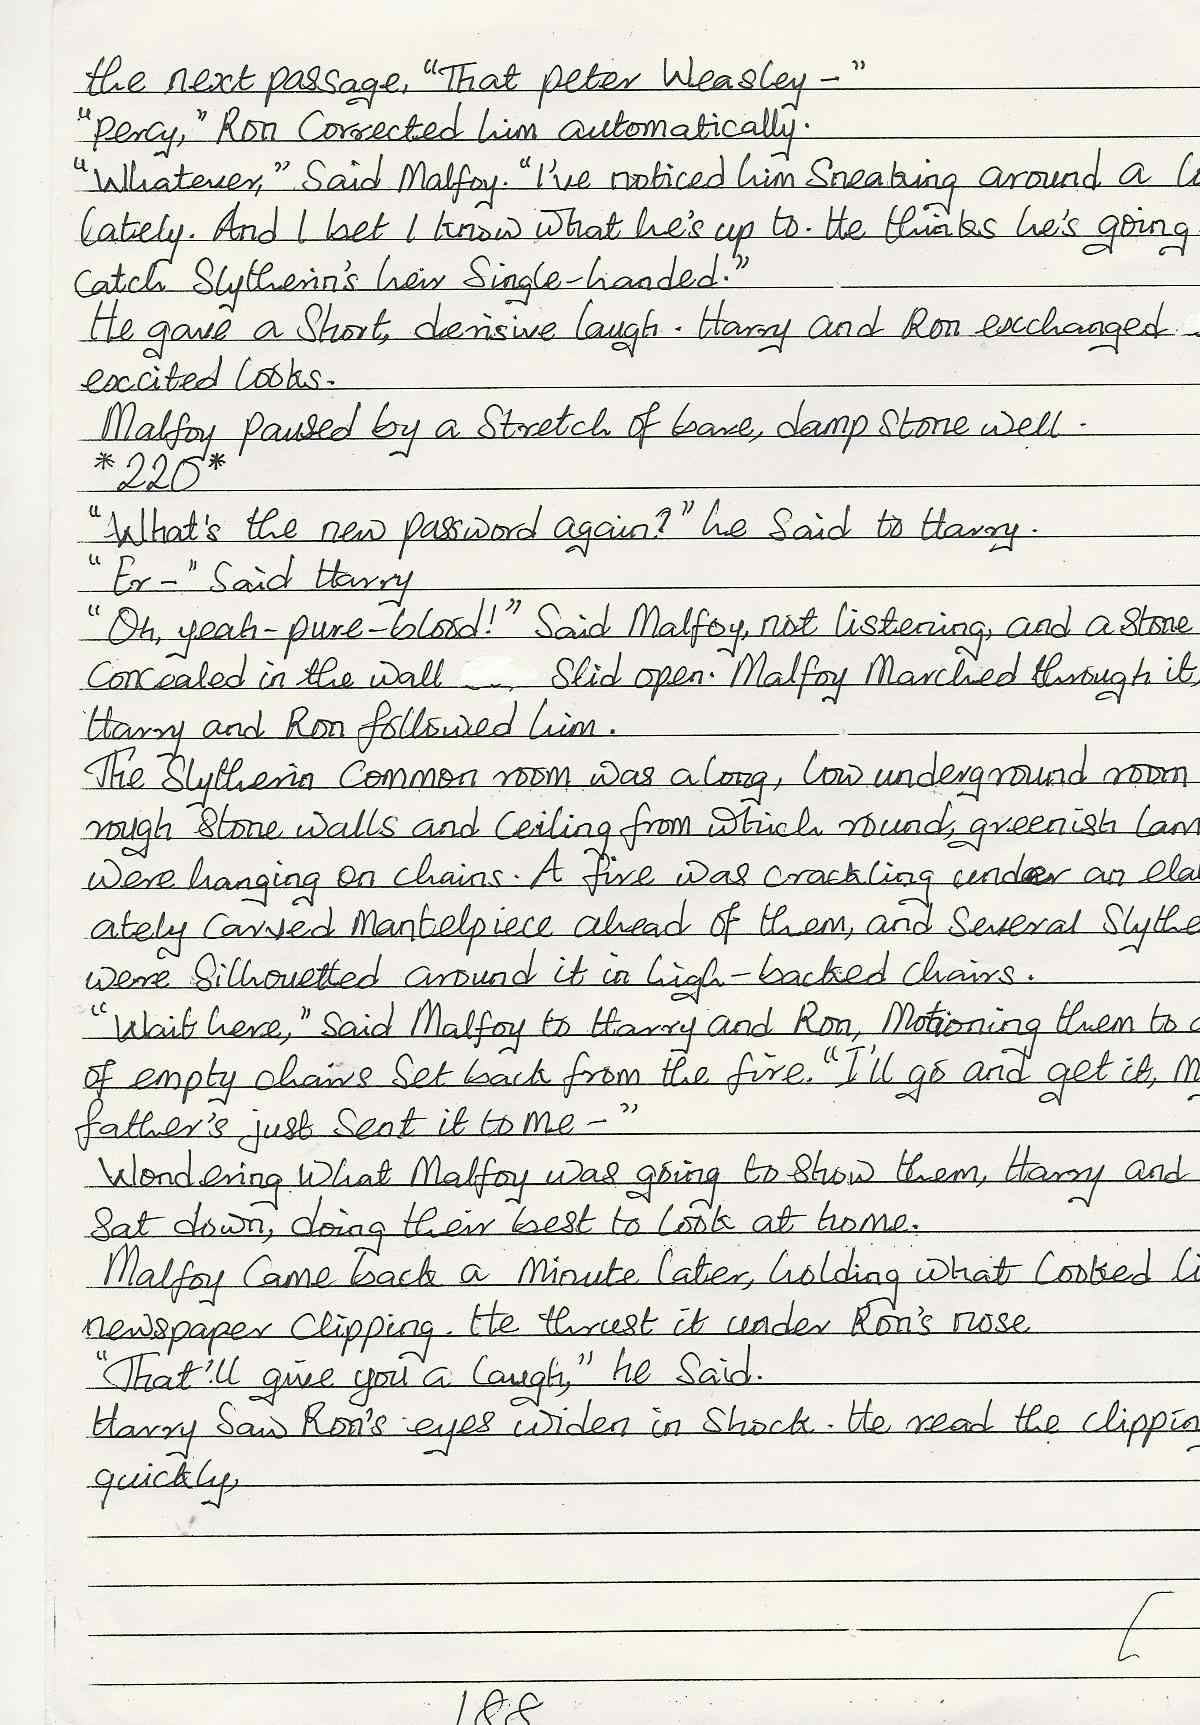 the next passage, "That peter Weasley –"
"percy," Ron Corrected him automatically.
"Whatever," Said Malfoy. "I've noticed him Sneaking around a
lately. And I bet I know what he's up to. He thinks he's going
catch Slytherin's heir Single-handed."
He gave a Short, derisive laugh. Harry and Ron exchanged
excited looks.
Malfoy paused by a Stretch of bare, damp Stone well.
*220*
"What's the new password again?" he Said to Harry.
"Er –" Said Harry
"Oh, yeah – pure-blood!" Said Malfoy, not listening, and a Stone
Concealed in the wall Slid open. Malfoy Marched through it,
Harry and Ron followed him.
The Slytherin Common room was a long, low underground room
rough Stone walls and Ceiling from which round, greenish
were hanging on chains. A fire was crackling under an
ately Carved Mantelpiece ahead of them, and Several
were Silhouetted around it in high-backed chairs.
"Wait here," Said Malfoy to Harry and Ron, Motioning them to
of empty chairs Set back from the fire. "I'll go and get it,
father's just Sent it to me –"
Wondering What Malfoy was going to Show them, Harry and
Sat down, doing their best to look at home.
Malfoy Came back a Minute later, holding what looked
newspaper Clipping. He thrust it under Ron's nose
"That'll give you a laugh," he Said.
Harry Saw Ron's eyes widen in Shock. He read the
quickly,
188